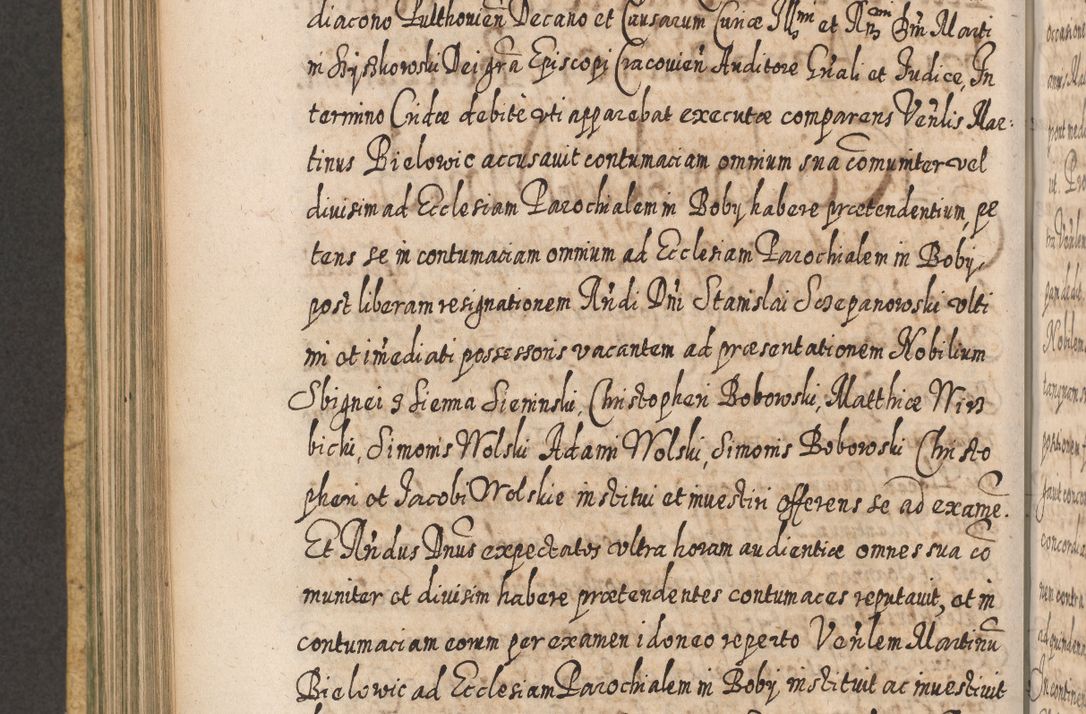 diacono Pulthovien̄ Decano et Causarum Curiæ Illmi et Rmi Dn̄i Marti
ni Szyszkowski Dei gr̄a Episcopi Cracovien̄ Auditore Gn̄ali et Judice, In
termino Cridæ debitè uti apparebat executæ comparens Ven̄lis Mar-
tinus Bielowic accusavit contumaciam omnium sua com̄uniter vel
divisim ad Ecclesiam Parochialem in Boby habere prætendentium, pe
tens se in contumaciam omnium ad Ecclesiam Parochialem in Boby,
post liberam resignationem Rn̄di Dn̄i Stanislai Sczepanowski ulti
mi et im̄ediati possessoris vacantem ad præsentationem Nobilium
Sbignei 9 Sienna Sieninski, Christopheri Bobowski, Matthiæ Wirz
bicki, Simonis Wolski Adami Wolski, Simonis Bobowski Christo
pheri et Jacobi Wolskie institui et investiri offerens se ad examē.
Et Rn̄dus Dn̄us expectatos ultra horam audientiæ omnes sua cō
muniter et divisim habere prætendentes contumaces reputavit, et in
contumaciam eorum per examen idoneo reperto Ven̄lem Martinū
Bielowic ad Ecclesiam Parochialem in Boby instituit ac investivit